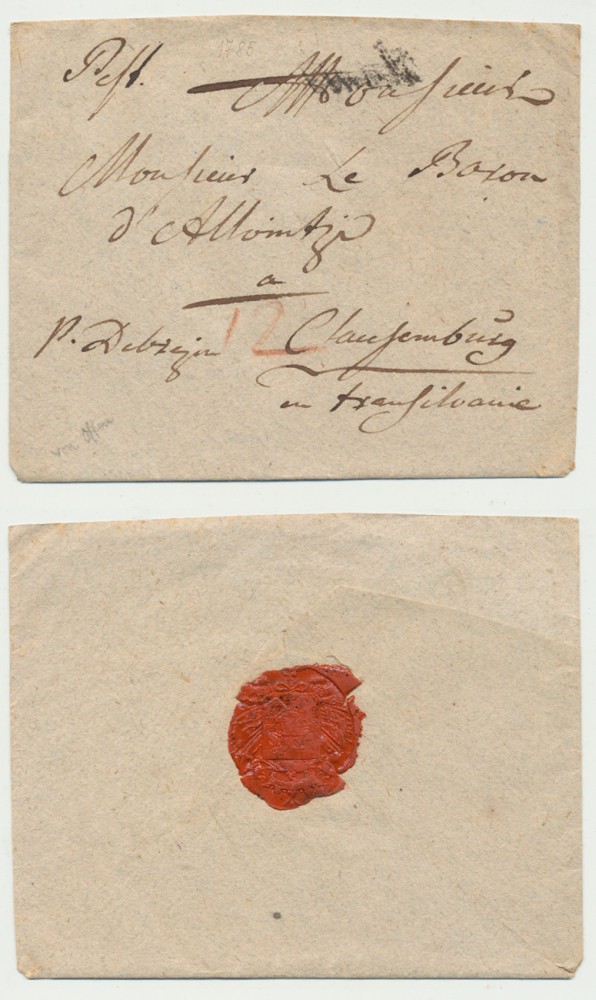 1785
Pest. Monsieur
Monsieur Le Baron
d'Allvintzi
a
p. Debrezin 12 Clausemburg
en transilvanie
von Ofen